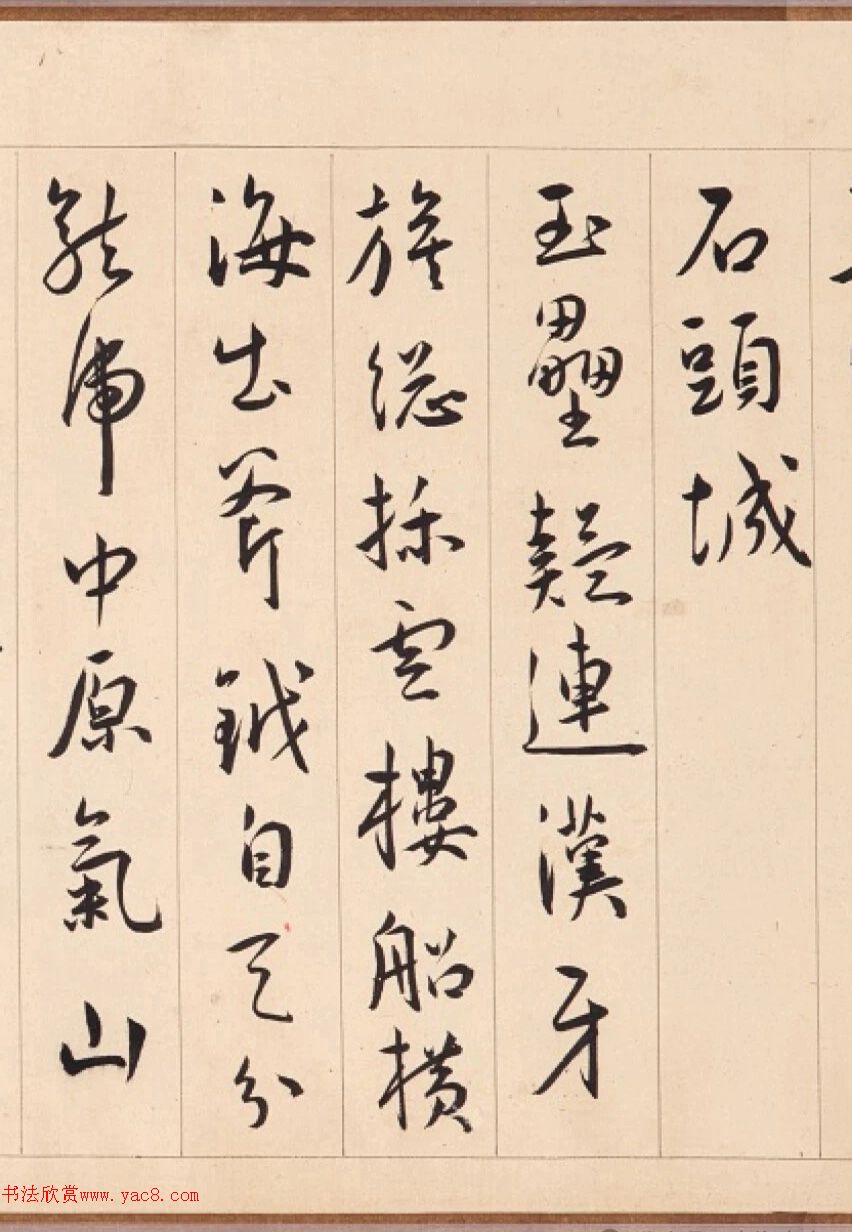 石頭城
玉壘疑連漢牙
旗總拂雲樓船橫
海出斧鉞自天分
龍虎中原氣山
书法欣赏www.yac8.com